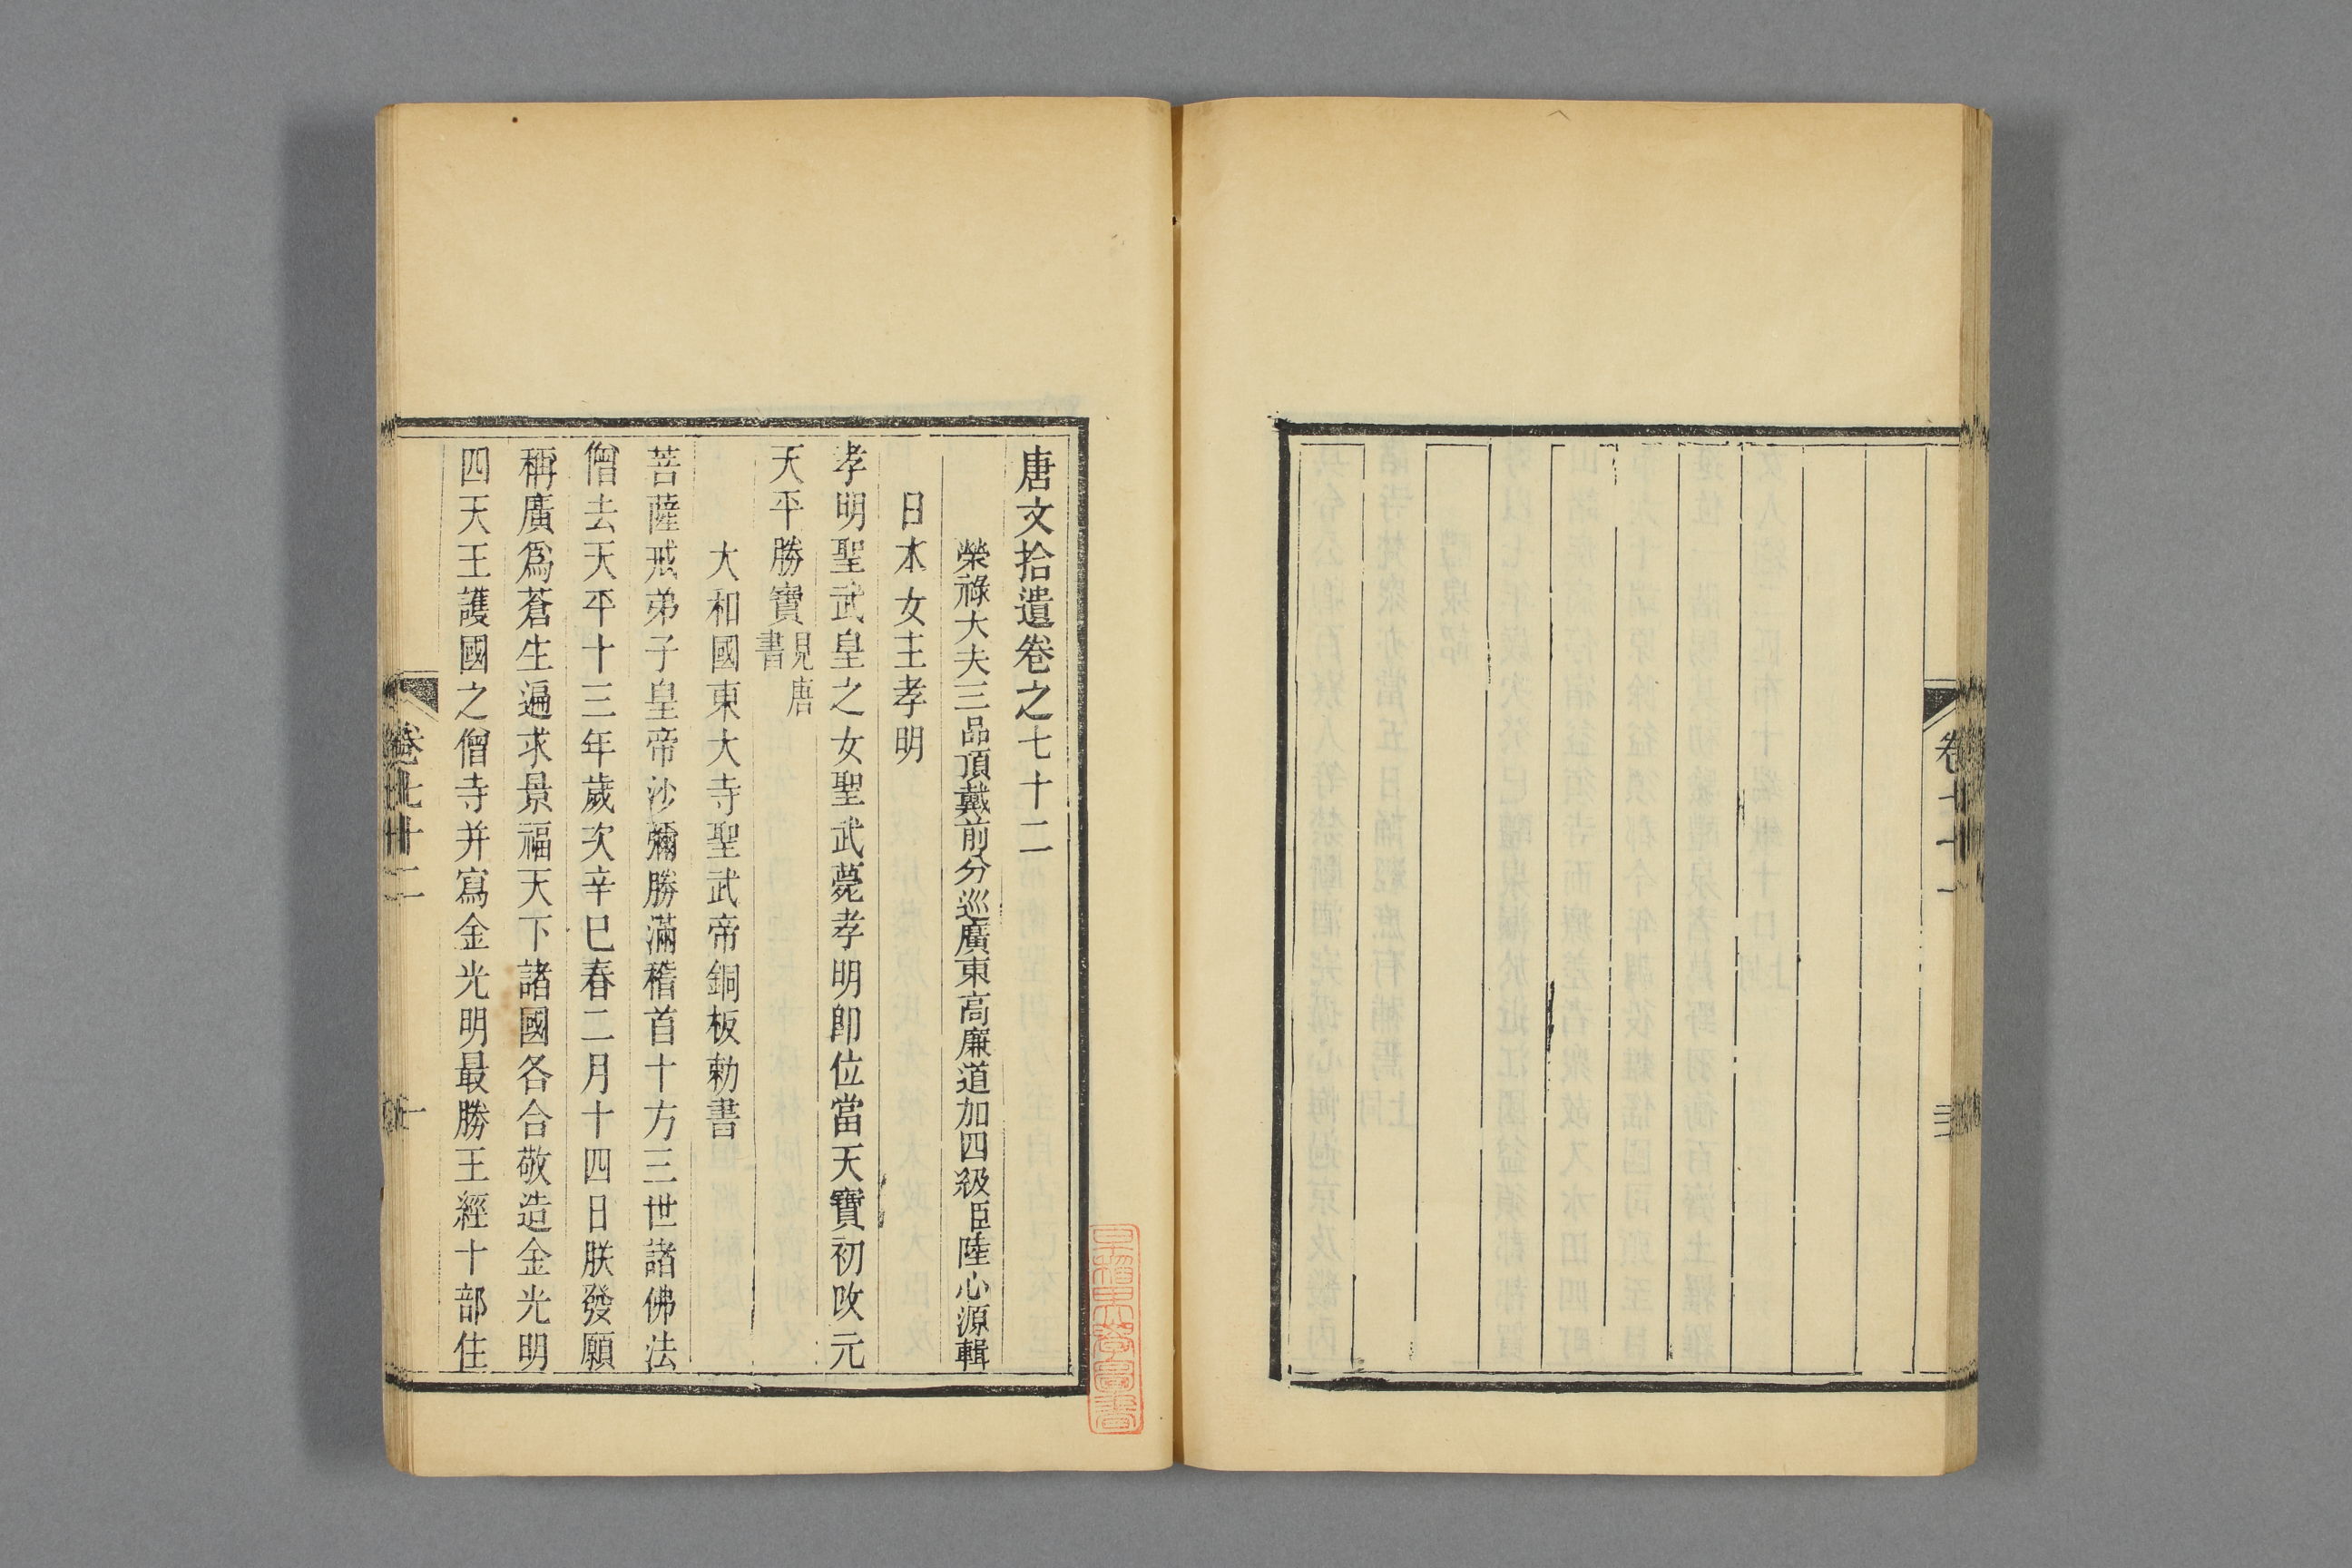 唐文拾遺卷之七十二
榮祿大夫三品頂戴前分巡廣東高廉道加四級臣陸心源輯
日本女主孝明
孝明聖武皇之女聖武薨孝明卽位當天寶初改元
天平勝寶見唐書
大和國東大寺聖武帝銅板勅書
菩薩戒弟子皇帝沙彌勝滿稽首十方三世諸佛法
僧去天平十三年歲次辛巳春二月十四日朕發願
稱廣爲蒼生遍求景福天下諸國各合敬造金光明
四天王護國之僧寺并寫金光明最勝王經十部住
卷七十二
一